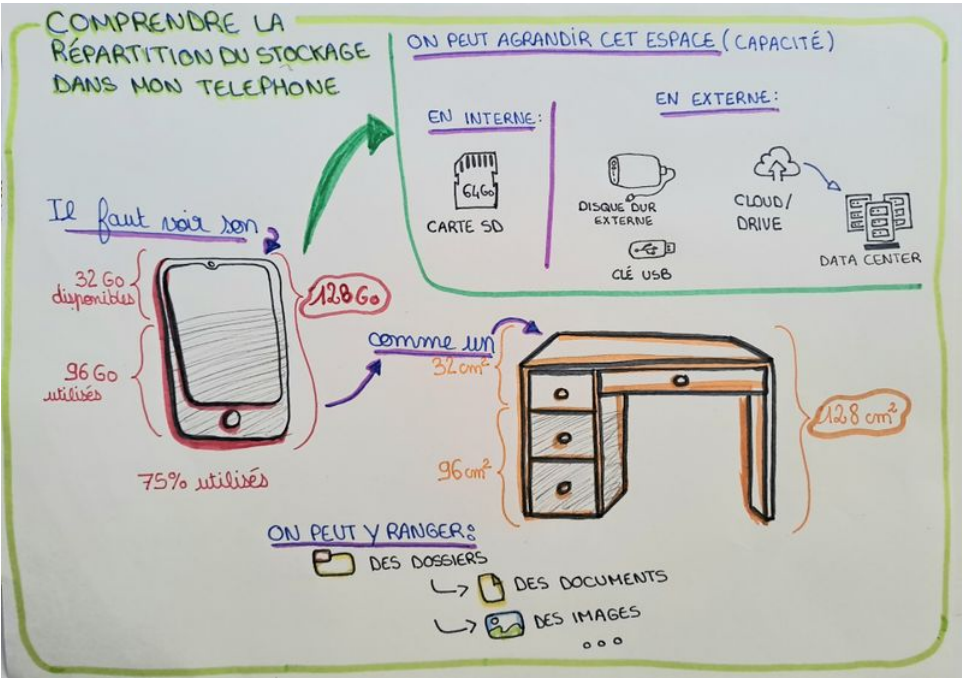 COMPRENDRE LA
RÉPARTITION DU STOCKAGE
DANS MON TELEPHONE
ON PEUT AGRANDIR CET ESPACE (CAPACITÉ)
EN INTERNE:
64Go
CARTE SD
EN EXTERNE:
DISQUE DUR
EXTERNE
CLÉ USB
CLOUD/
DRIVE
DATA CENTER
Il faut voir son
32 Go
disponibles
96 Go
utilisés
128 Go
75% utilisés
comme un
32 cm²
96 cm²
128 cm²
ON PEUT Y RANGER:
DES DOSSIERS
DES DOCUMENTS
DES IMAGES
...